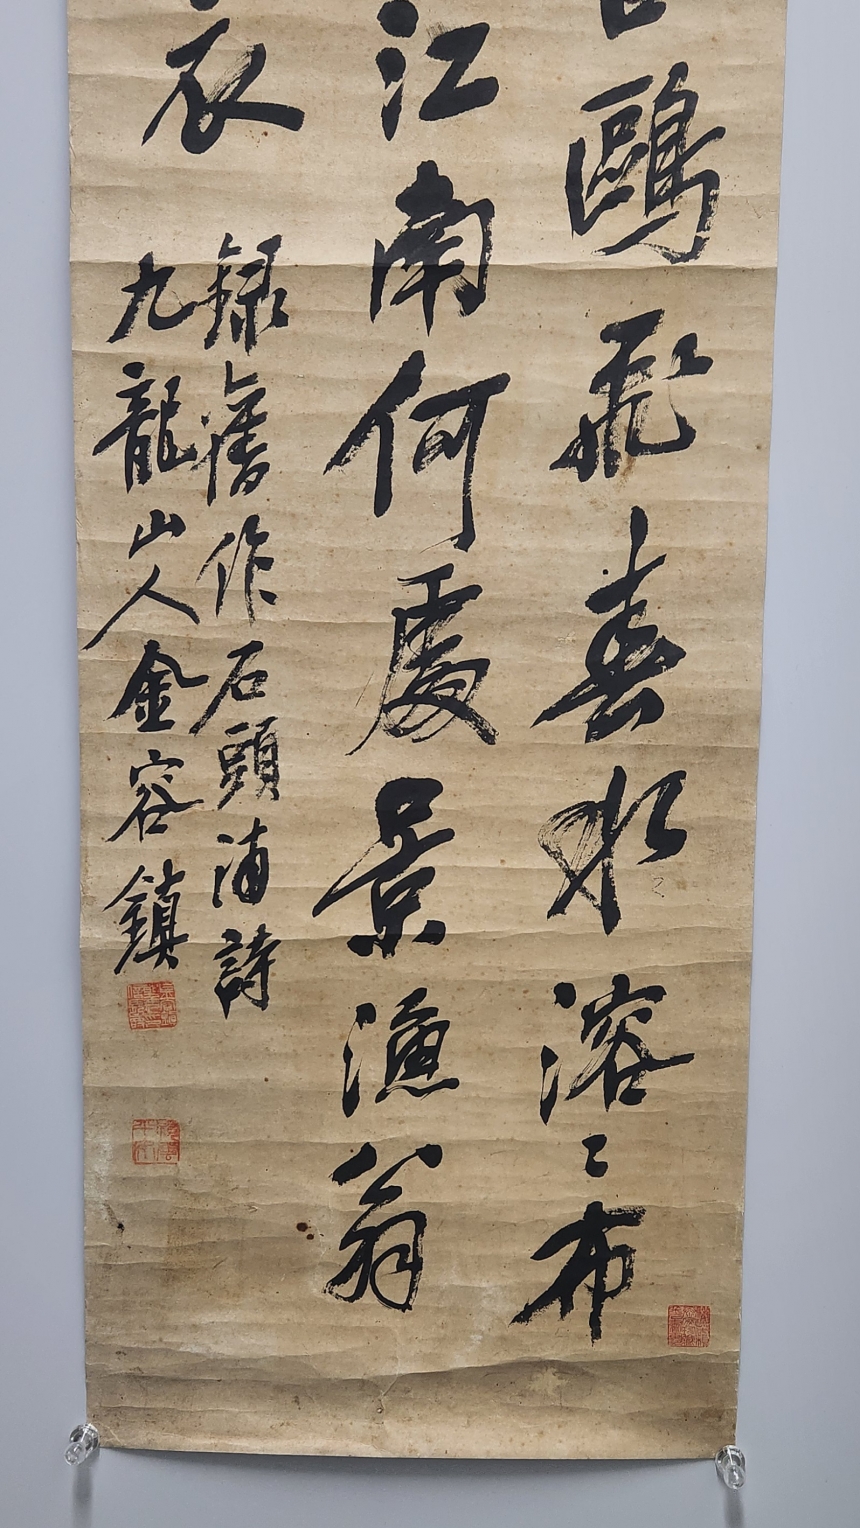 鷗飛春水溶〻布
江南何處景漁翁
衣
録舊作石頭浦詩
九龍山人金容鎮